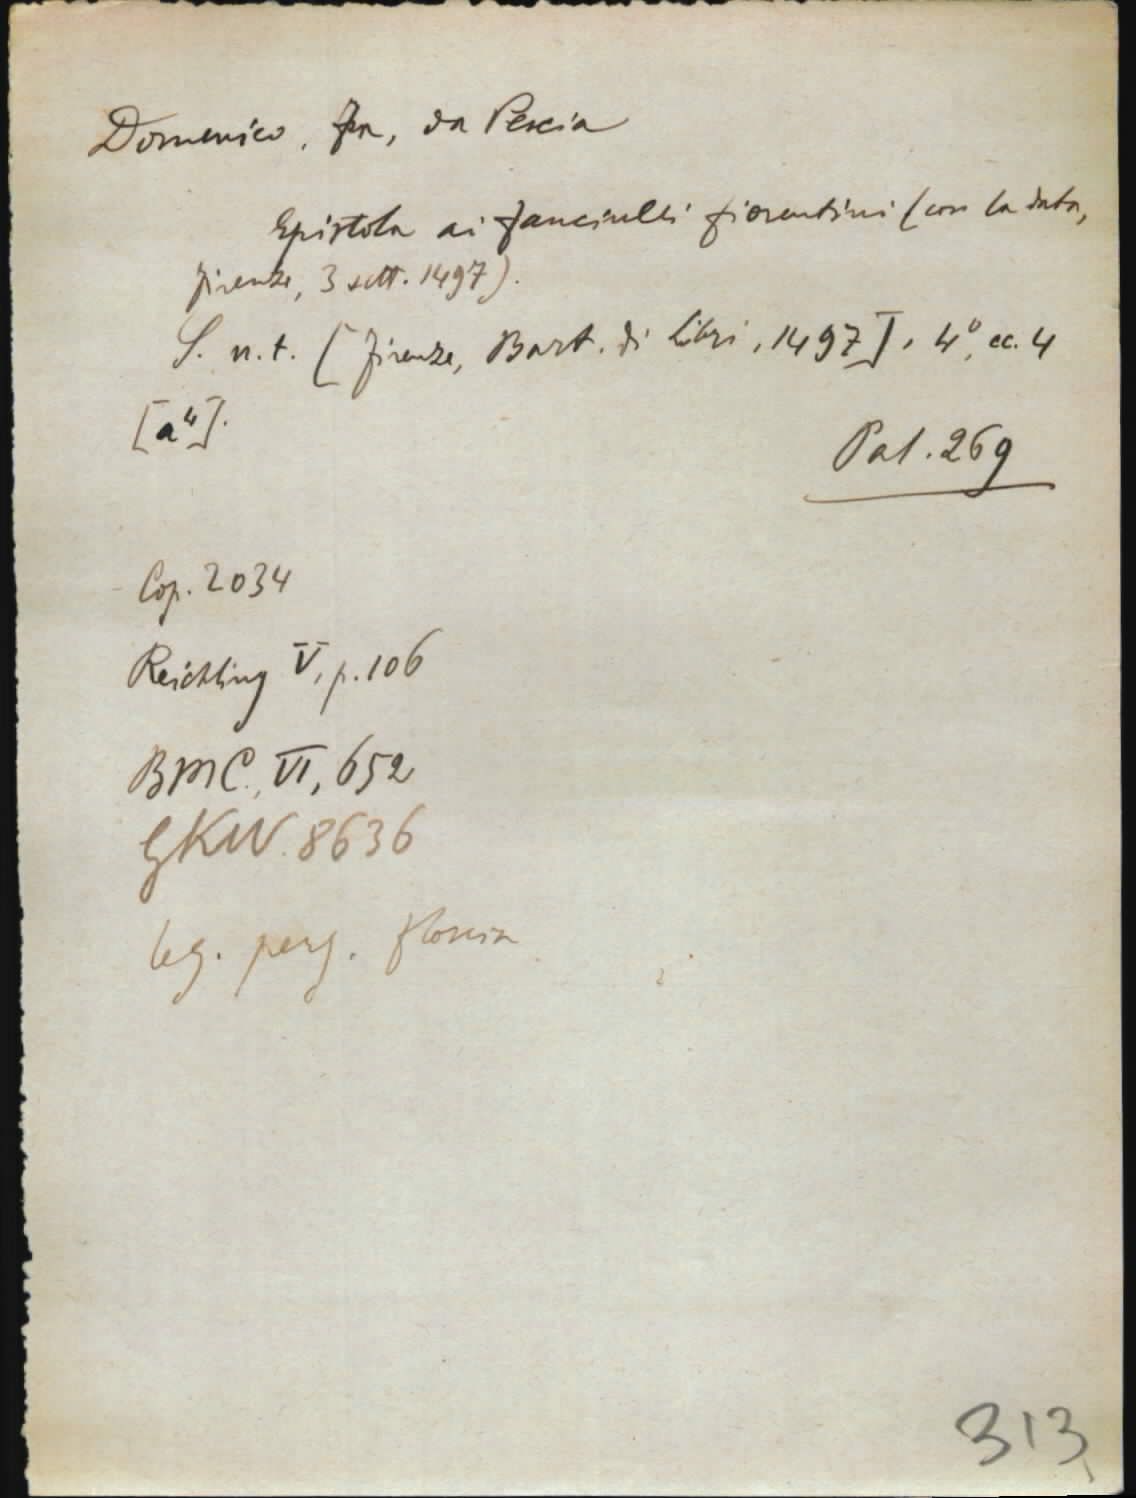 Domenico, fra, da Pescia
Epistola ai fanciulli fiorentini (con la data,
Firenze, 3 sett. 1497).
S. n. t. [Firenze, Bart. di Libri, 1497], 4°, cc. 4
[a⁴].
Pal. 269
Cop. 2034
Reichling V, p. 106
BMC, VI, 652
GKW. 8636
Leg. perg. floscia
313